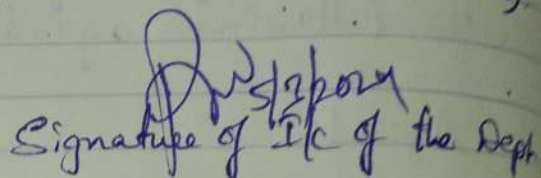 5/2/2024
Signature of I/c of the Dept